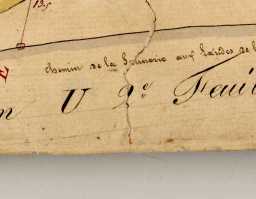 135
chemin de la Saunerie aux Landes de l
E
n U 2e Feui